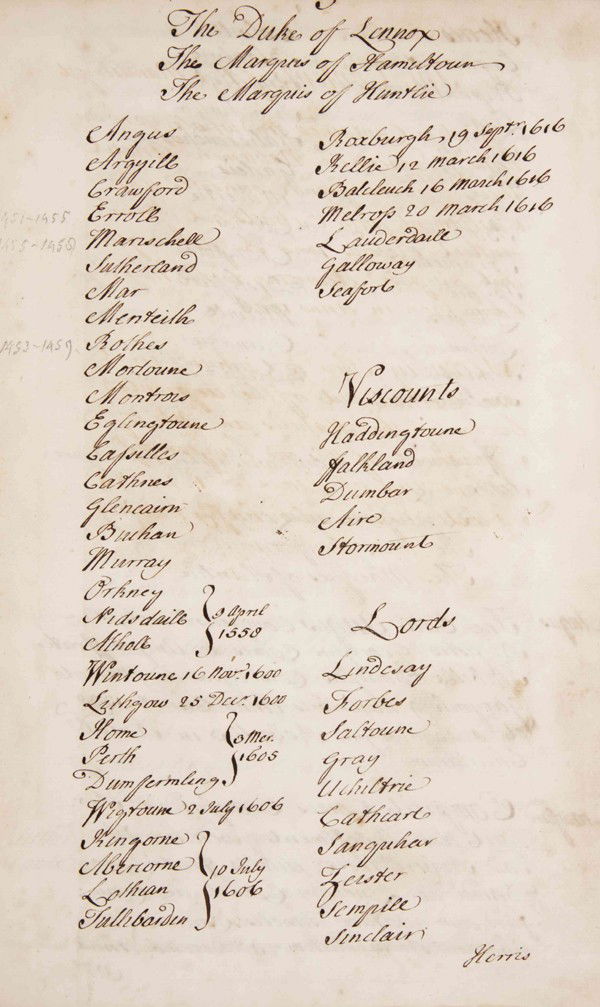 The Duke of Lennox
The Marquis of Hameltoun
The Marquis of Huntlie
Angus
Argyill
Crawford
Erroll
Marischell
Sutherland
Mar
Menteith
Rothes
Mortoune
Montrois
Eglingtoune
Cassilles
Cathnes
Glencairn
Buchan
Murray
Orkney
Nidsdaill
Atholl
3 April
1558
Wintoune 16 Novr. 1600
Lithgow 25 Decr. 1600
Home
Perth
Dumfermling
3 Mer.
1605
Wigtoune 2 July 1606
Kingorne
Abercorne
Lothian
Tullibarden
10 July
1606
1451-1455
1455-1458
1453-1459
Roxburgh, 19 Septr. 1616
Kellie 12 March 1616
Balcleuch 16 March 1616
Melross 20 March 1616
Lauderdaill
Galloway
Seafort
Viscounts
Haddingtoune
ffalkland
Dumbar
Aire
Stormount
Lords
Lindesay
Forbes
Saltoune
Gray
Uchiltrie
Cathcart
Sanquhar
Zester
Sempill
Sinclair
Herris